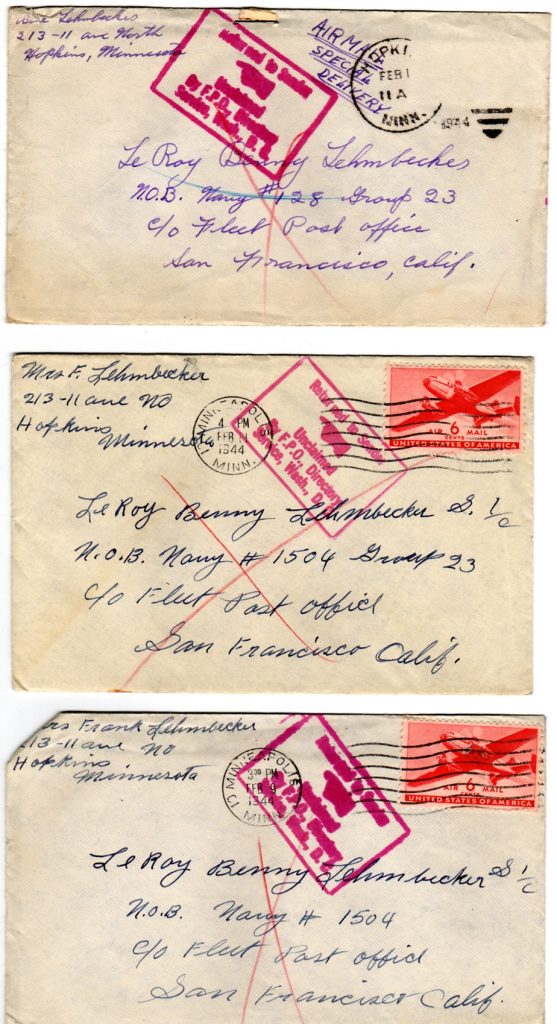 Lehmbecker
213-11 ave North
Hopkins, Minnesota
Return to Sender
Unclaimed
By F.P.O. Directory
Service, Wash., D.C.
AIRMAIL
SPECIAL
DELIVERY
HOPKI
FEB 1
11 A
MINN.
1944
LeRoy Benny Lehmbecker
N.O.B. Navy #128 Group 23
c/o Fleet Post office
San Francisco, Calif.
Mrs F. Lehmbecker
213-11 ave NO
Hopkins
Minnesota
MINNEAPOLIS
4 PM
FEB
1944
MINN.
Returned to Sender
Unclaimed
By F.P.O. Directory
Service, Wash., D.C.
AIR 6 MAIL
CENTS
UNITED STATES OF AMERICA
LeRoy Benny Lehmbecker S. 1/c
N.O.B. Navy # 1504 Group 23
c/o Fleet Post office
San Francisco Calif.
Mrs Frank Lehmbecker
213-11 ave NO
Hopkins
Minnesota
MINNEAPOLIS
3 30 PM
FEB 9
1944
MINN.
AIR 6 MAIL
CENTS
UNITED STATES OF AMERICA
LeRoy Benny Lehmbecker S 1/c
N.O.B. Navy # 1504
c/o Fleet Post office
San Francisco Calif.